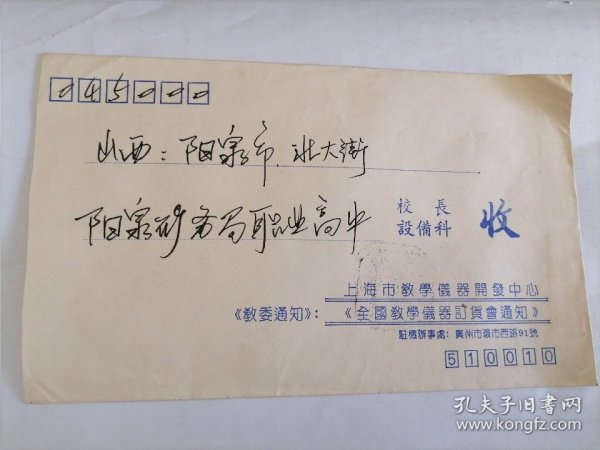 045000
山西：阳泉市.北大街
阳泉矿务局职业高中 校長 設備科 收
上海市教學儀器開發中心
《教委通知》：《全國教學儀器訂貨會通知》
駐穗辦事處：廣州市環市西路91號
510010
孔夫子旧书网
www.kongfz.com